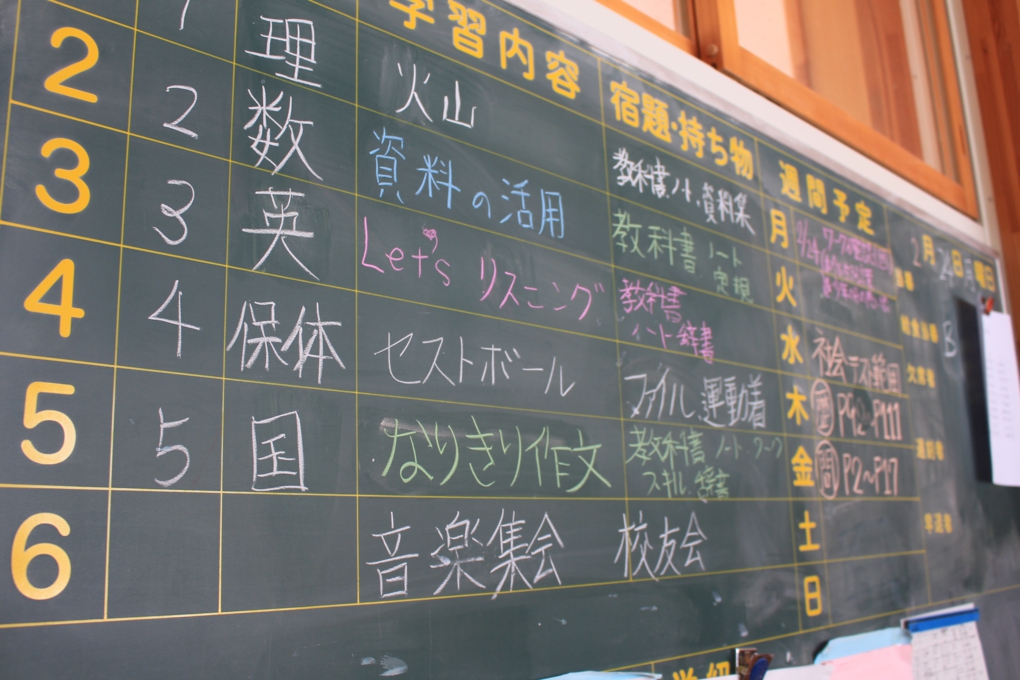 学習内容
宿題・持ち物
週間予定
2月24日 曜日
1 理 火山 教科書 ノート、資料集
月
2 2 数 資料の活用 教科書 ノート 定規
火
3 3 英 Let's リスニング 教科書 ノート 辞書
水 社会テスト範囲
4 4 保体 セストボール ファイル、運動着
木 P92〜P111
5 5 国 なりきり作文 教科書 ノート・ワーク スキル 辞書
金 P2〜P17
6 音楽集会 校友会
土
日
給食当番
欠席者
遅刻者
早退者
B